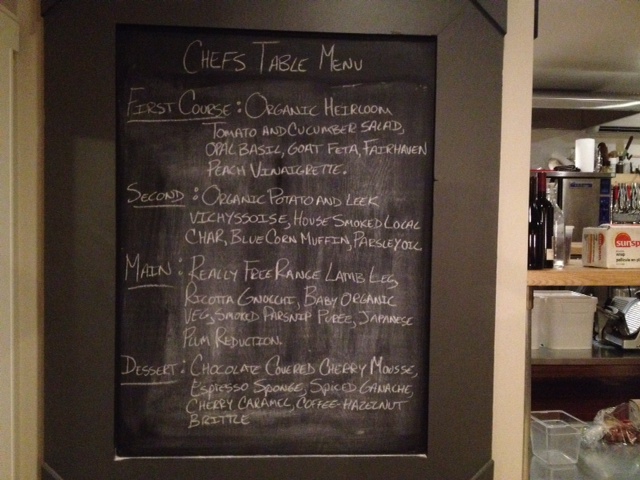 CHEFS TABLE MENU
FIRST COURSE: ORGANIC HEIRLOOM
TOMATO AND CUCUMBER SALAD,
OPAL BASIL, GOAT FETA, FAIRHAVEN
PEACH VINAIGRETTE.
SECOND: ORGANIC POTATO AND LEEK
VICHYSSOISE, HOUSE SMOKED LOCAL
CHAR, BLUE CORN MUFFIN, PARSLEY OIL
MAIN: REALLY FREE RANGE LAMB LEG,
RICOTTA GNOCCHI, BABY ORGANIC
VEG, SMOKED PARSNIP PUREE, JAPANESE
PLUM REDUCTION.
DESSERT: CHOCOLATE COVERED CHERRY MOUSSE,
ESPRESSO SPONGE, SPICED GANACHE,
CHERRY CARAMEL, COFFEE-HAZELNUT
BRITTLE